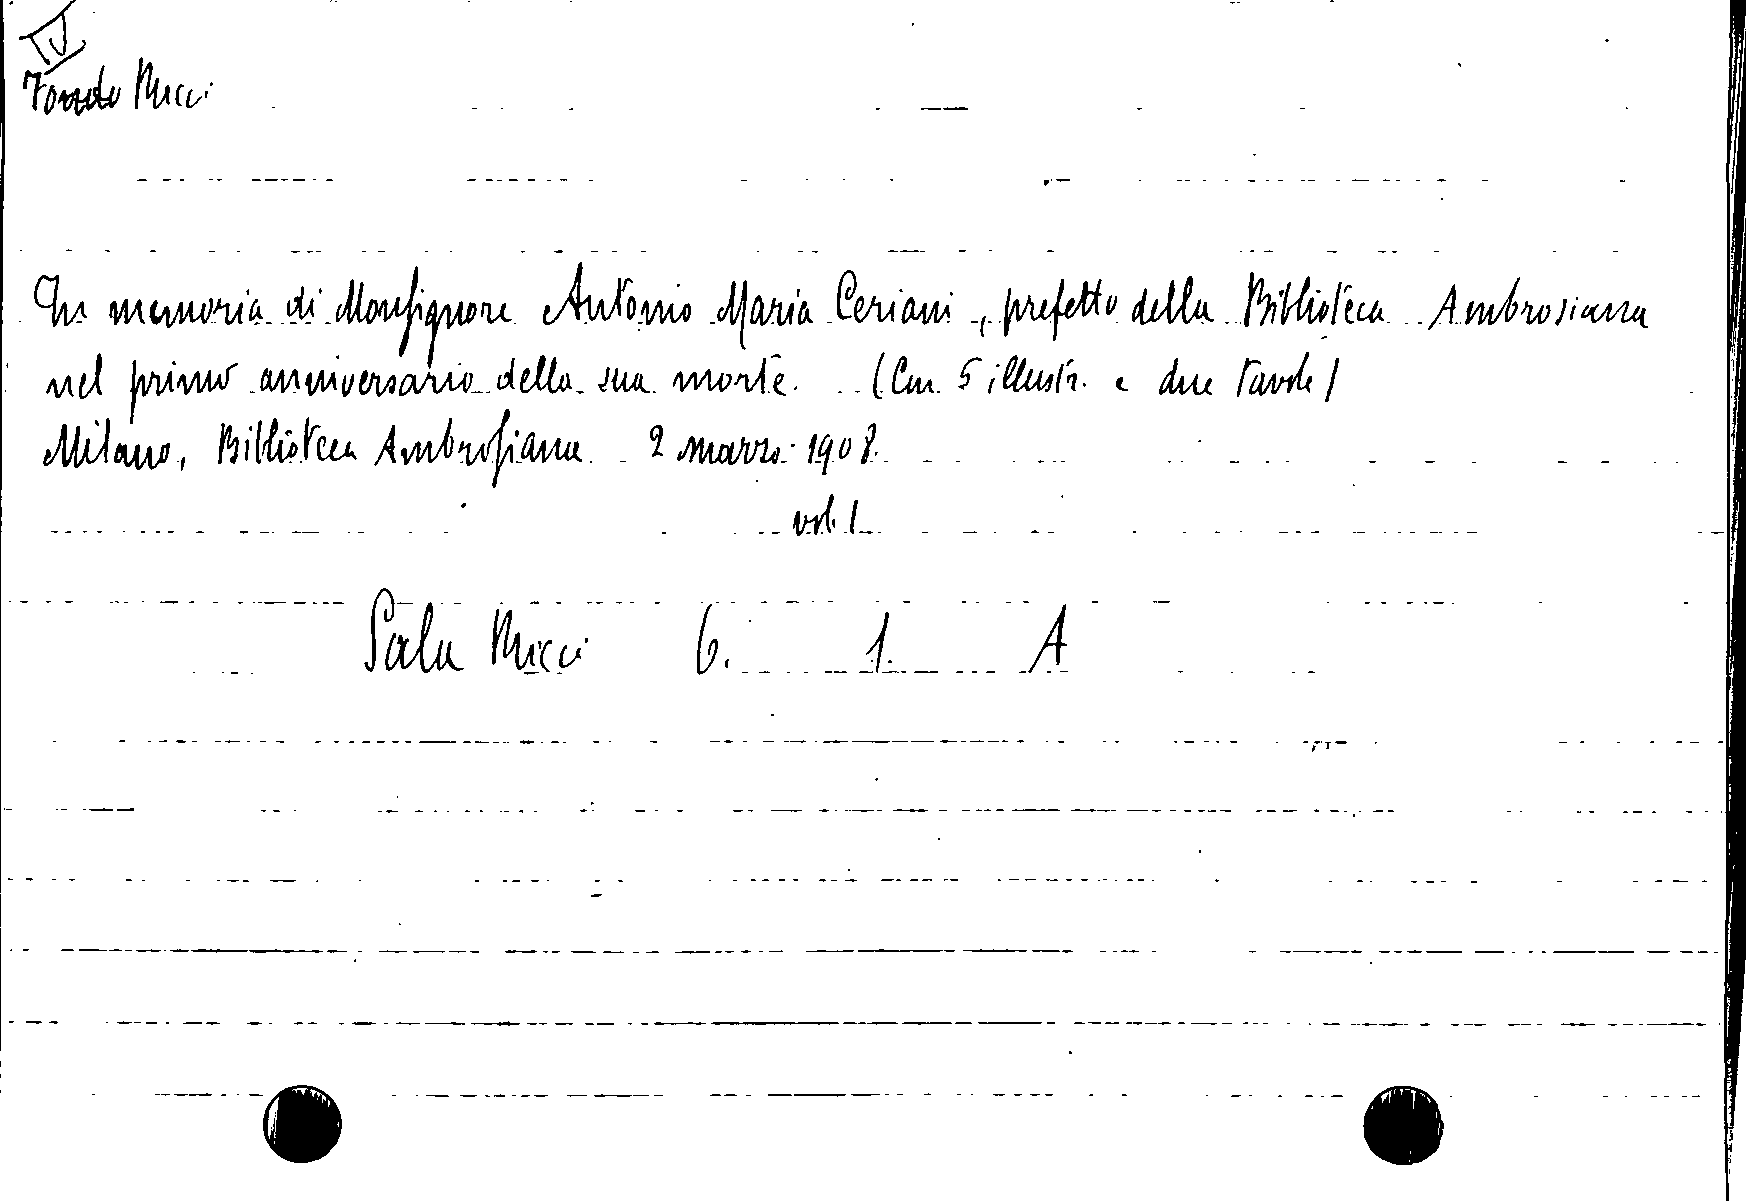 IV
Fondo Ricci
In memoria di Monsignore Antonio Maria Ceriani, prefetto della Biblioteca Ambrosiana
nel primo anniversario della sua morte. (Con 5 illustr. e due tavole)
Milano, Biblioteca Ambrosiana 2 marzo 1908.
vol. 1
Sala Ricci 6. 1. A